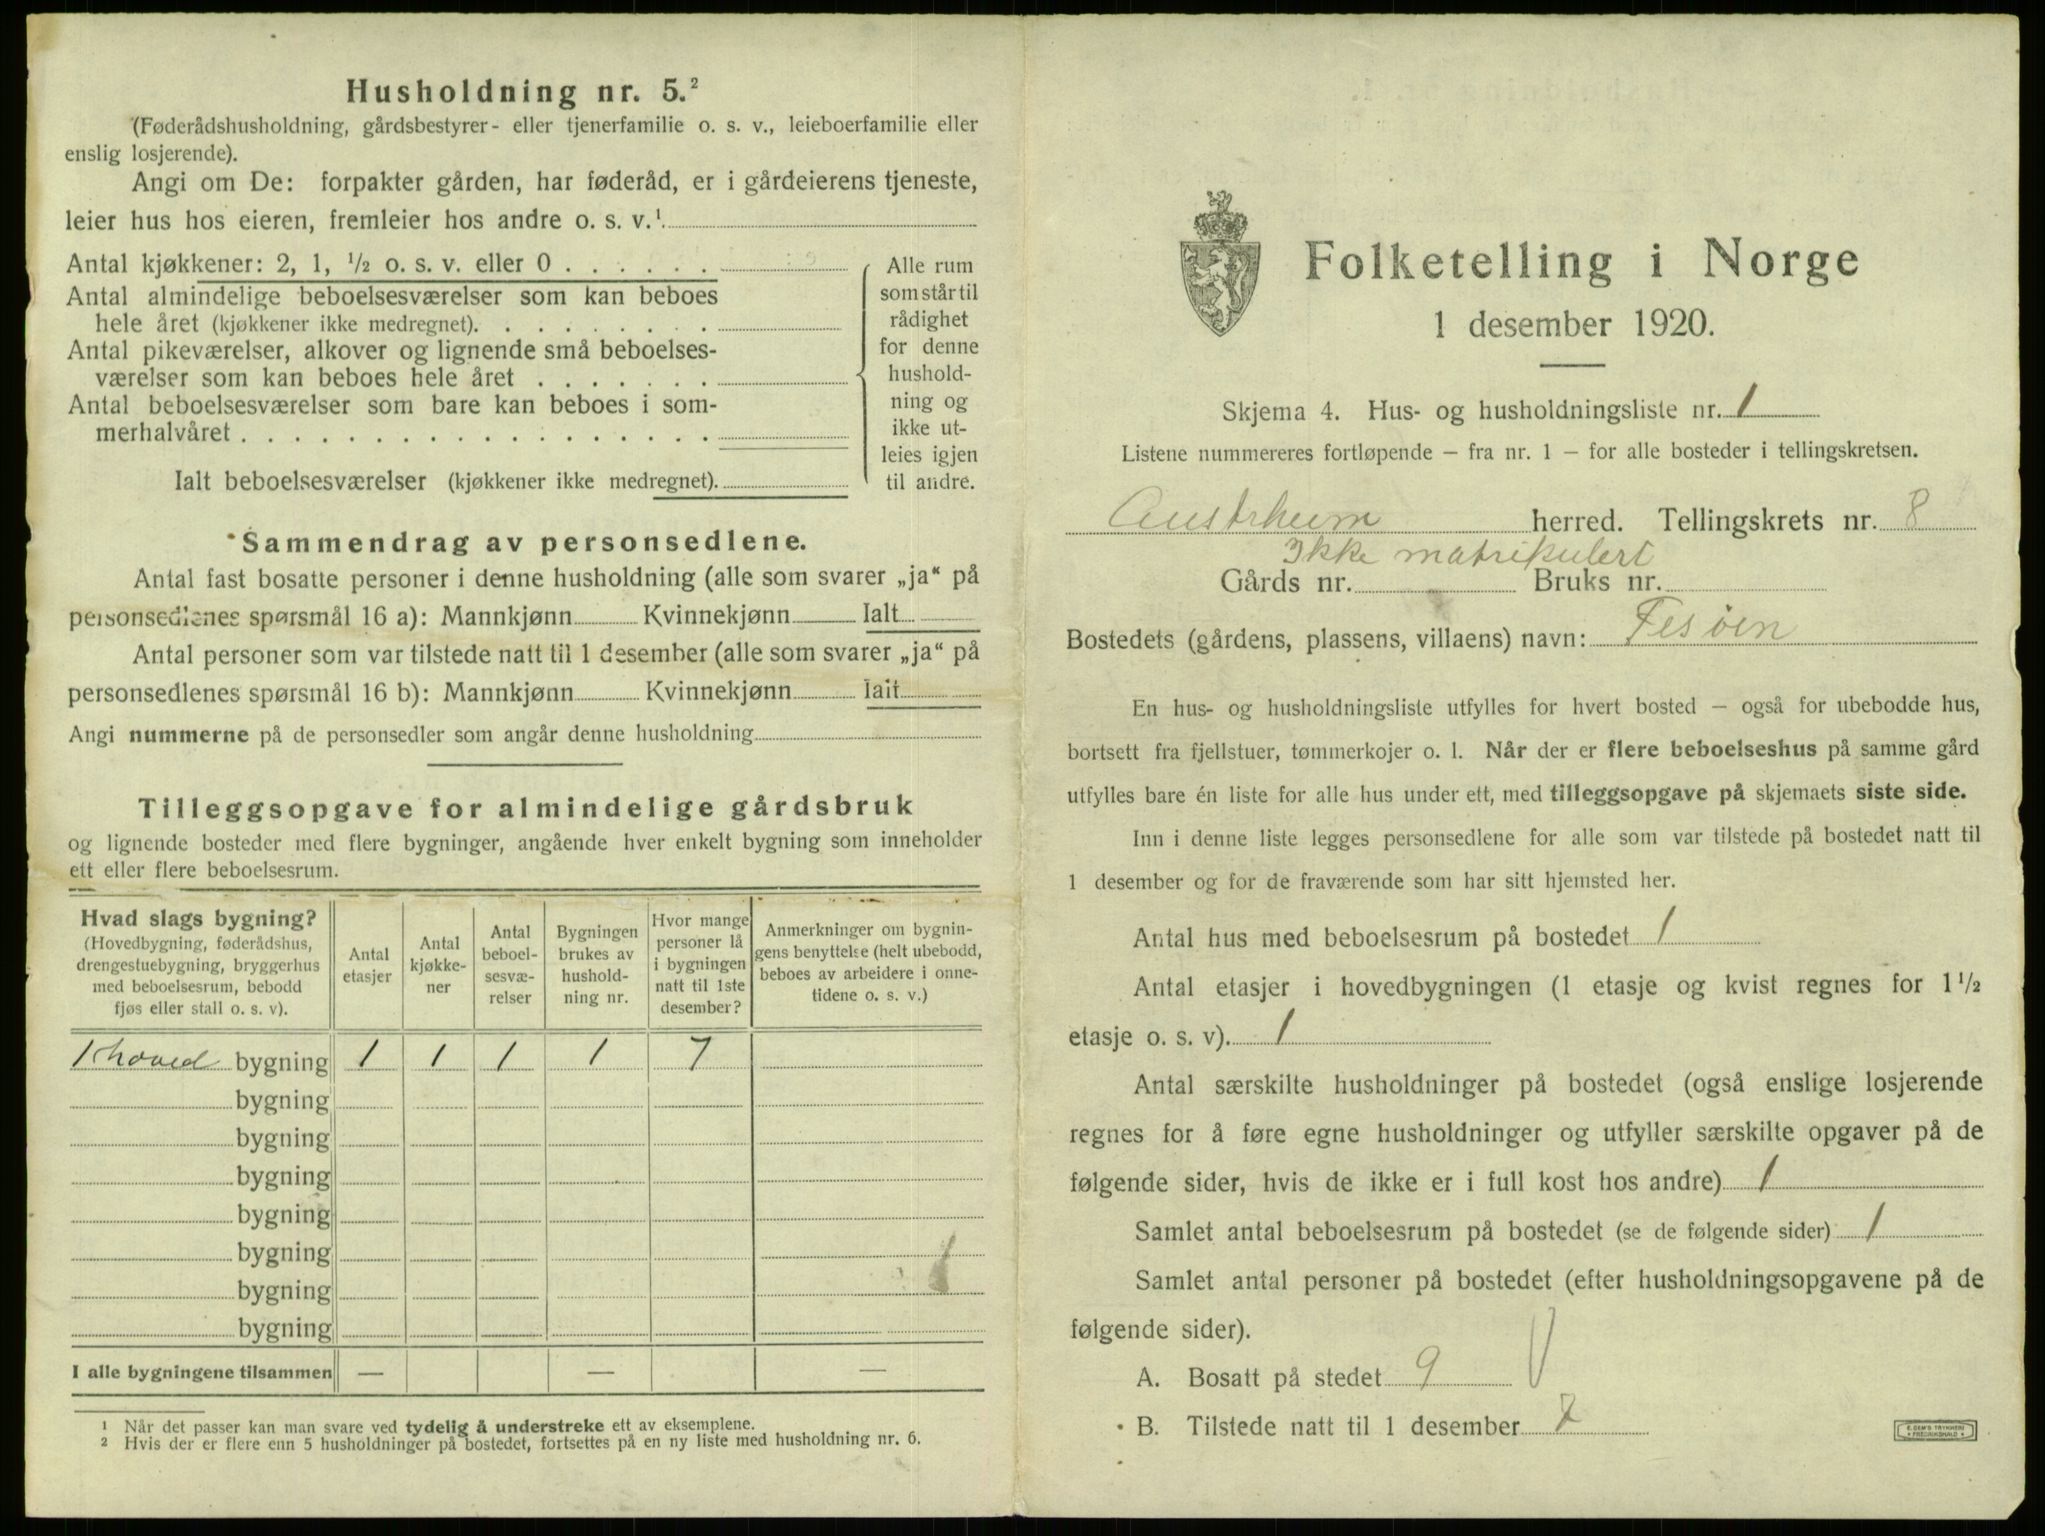 Husholdning nr. 5.²
(Føderådshusholdning, gårdsbestyrer- eller tjenerfamilie o. s. v., leieboerfamilie eller
enslig losjerende).
Angi om De: forpakter gården, har føderåd, er i gårdeierens tjeneste,
leier hus hos eieren, fremleier hos andre o. s. v.¹
Antal kjøkkener: 2, 1, ½ o. s. v. eller 0 . . . . . .
Antal almindelige beboelsesværelser som kan beboes
hele året (kjøkkener ikke medregnet). . . . . . . . .
Antal pikeværelser, alkover og lignende små beboelses-
værelser som kan beboes hele året . . . . . . .
Antal beboelsesværelser som bare kan beboes i som-
merhalvåret . . . . . . . . . . . . . . . . . .
Ialt beboelsesværelser (kjøkkener ikke medregnet).
Alle rum
som står til
rådighet
for denne
hushold-
ning og
ikke ut-
leies igjen
til andre.
Sammendrag av personsedlene.
Antal fast bosatte personer i denne husholdning (alle som svarer „ja“ på
personsedlenes spørsmål 16 a): Mannkjønn Kvinnekjønn Ialt
Antal personer som var tilstede natt til 1 desember (alle som svarer „ja“ på
personsedlenes spørsmål 16 b): Mannkjønn Kvinnekjønn Ialt
Angi nummerne på de personsedler som angår denne husholdning
Tilleggsopgave for almindelige gårdsbruk
og lignende bosteder med flere bygninger, angående hver enkelt bygning som inneholder
ett eller flere beboelsesrum.
Hvad slags bygning?
(Hovedbygning, føderådshus,
drengestuebygning, bryggerhus
med beboelsesrum, bebodd
fjøs eller stall o. s. v).
Antal
etasjer
Antal
kjøkke-
ner
Antal
beboel-
sesvæ-
relser
Bygningen
brukes av
hushold-
ning nr.
Hvor mange
personer lå
i bygningen
natt til 1ste
desember?
Anmerkninger om bygnin-
gens benyttelse (helt ubebodd,
beboes av arbeidere i onne-
tidene o. s. v.)
1 hoved bygning 1 1 1 1 7
bygning
bygning
bygning
bygning
bygning
bygning
bygning
I alle bygningene tilsammen — — —
¹ Når det passer kan man svare ved tydelig å understreke ett av eksemplene.
² Hvis der er flere enn 5 husholdninger på bostedet, fortsettes på en ny liste med husholdning nr. 6.
Folketelling i Norge
1 desember 1920.
Skjema 4. Hus- og husholdningsliste nr. 1
Listene nummereres fortløpende – fra nr. 1 – for alle bosteder i tellingskretsen.
Austrheim herred. Tellingskrets nr. 8
Ikke matrikulert
Gårds nr. Bruks nr.
Bostedets (gårdens, plassens, villaens) navn: Fesøen
En hus- og husholdningsliste utfylles for hvert bosted – også for ubebodde hus,
bortsett fra fjellstuer, tømmerkojer o. l. Når der er flere beboelseshus på samme gård
utfylles bare én liste for alle hus under ett, med tilleggsopgave på skjemaets siste side.
Inn i denne liste legges personsedlene for alle som var tilstede på bostedet natt til
1 desember og for de fraværende som har sitt hjemsted her.
Antal hus med beboelsesrum på bostedet 1
Antal etasjer i hovedbygningen (1 etasje og kvist regnes for 1½
etasje o. s. v). 1
Antal særskilte husholdninger på bostedet (også enslige losjerende
regnes for å føre egne husholdninger og utfyller særskilte opgaver på de
følgende sider, hvis de ikke er i full kost hos andre) 1
Samlet antal beboelsesrum på bostedet (se de følgende sider) 1
Samlet antal personer på bostedet (efter husholdningsopgavene på de
følgende sider).
A. Bosatt på stedet 9
B. Tilstede natt til 1 desember 7
E. SEM'S TRYKKERI
FREDRIKSHALD